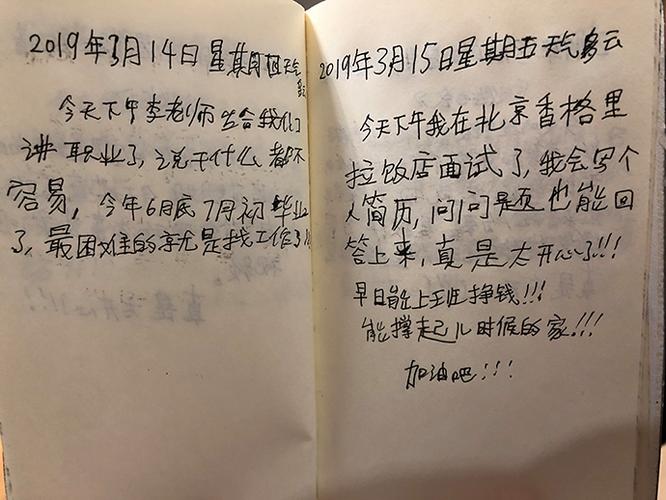 2019年3月14日星期四天气
多云
今天下午李老师给我们
讲职业了,说干什么都不
容易,今年6月底7月初毕业
了,最困难的就是找工作了
2019年3月15日星期五天气多云
今天下午我在北京香格里
拉饭店面试了,我会写个
人简历,问问题也能回
答上来,真是太开心了!!!
早日能上班挣钱!!!
能撑起儿时候的家!!!
加油吧!!!